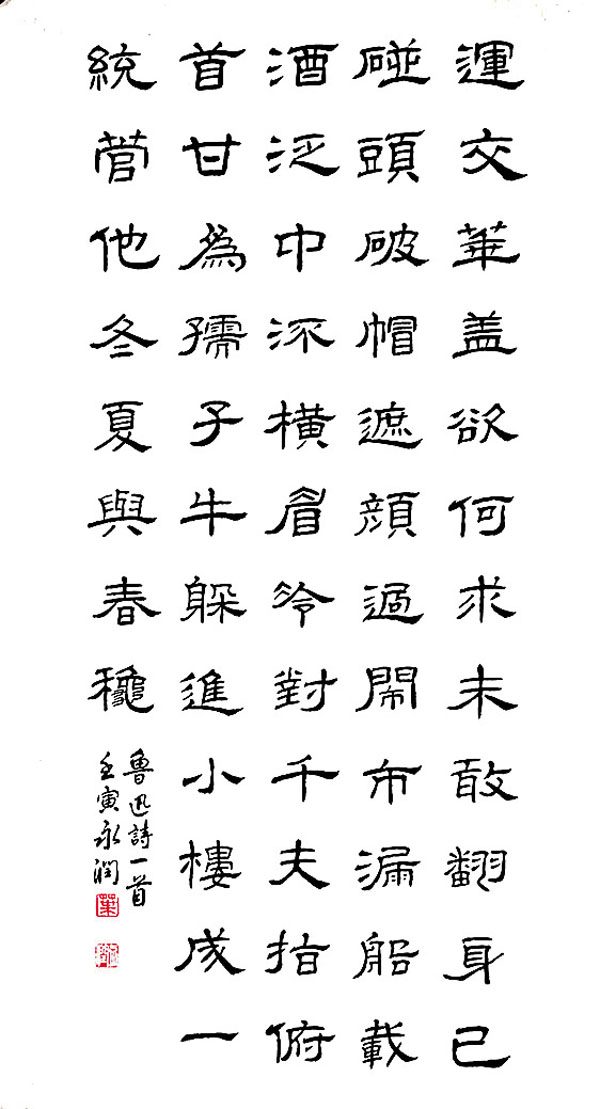 運交華盖欲何求未敢翻身已
碰頭破帽遮顔過鬧市漏船載
酒泛中流橫眉冷對千夫指俯
首甘為孺子牛躲進小樓成一
統管他冬夏與春龝
魯迅詩一首
壬寅永潤